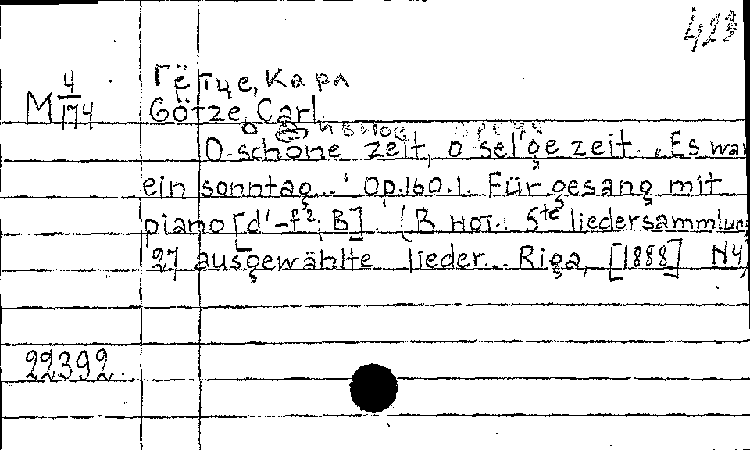 423
Гётце, Карл
М 4/174 Götze, Carl
O schöne zeit, o sel'ge zeit. „Es war
ein sonntag..." Op.160.1. Für gesang mit
piano [d'-f²; B] (В нот.: 5te liedersammlung
27 ausgewählte lieder... Riga, [1888] N4)
22392.